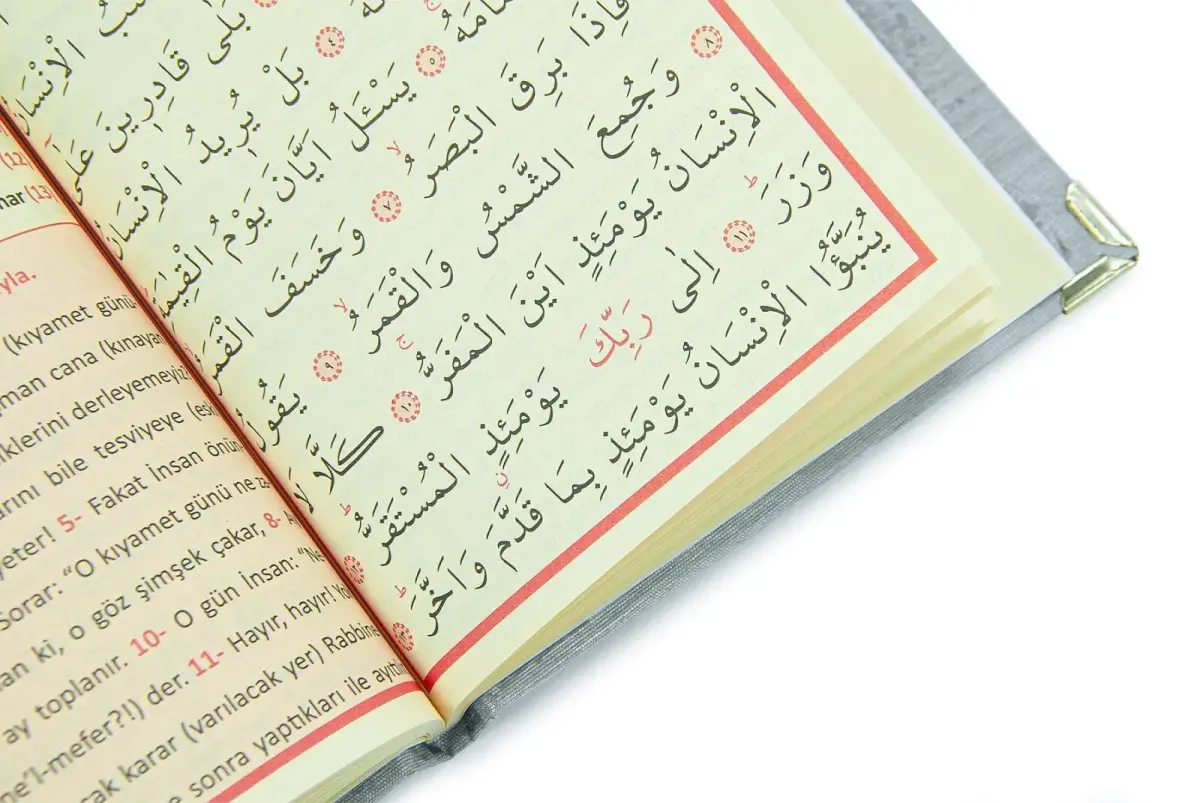 الْاِنْسَانُ
بَلٰى قَادِر۪ينَ عَلٰٓى
٤ بَلْ يُر۪يدُ الْاِنْسَانُ
٥ يَسْـَٔلُ اَيَّانَ يَوْمُ الْقِيٰمَةِ
فَاِذَا بَرِقَ الْبَصَرُ ٧ وَخَسَفَ الْقَمَرُ
٨ وَجُمِعَ الشَّمْسُ وَالْقَمَرُ ٩ يَقُولُ
الْاِنْسَانُ يَوْمَئِذٍ اَيْنَ الْمَفَرُّ ١٠ كَلَّا لَا
وَزَرَ ١١ اِلٰى رَبِّكَ يَوْمَئِذٍ الْمُسْتَقَرُّ ١٢
يُنَبَّؤُا الْاِنْسَانُ يَوْمَئِذٍ بِمَا قَدَّمَ وَاَخَّرَ ١٣
(12)
nar (13)
yla.
(kıyamet günü
man cana (kınayan
iklerini derleyemeyiz
arını bile tesviyeye
yeter! 5- Fakat İnsan önün
Sorar: “O kıyamet günü ne
an ki, o göz şimşek çakar, 8-
ay toplanır. 10- O gün İnsan: “Ne
ne’l-mefer?!) der. 11- Hayır, hayır! Yok
cak karar (varılacak yer) Rabbine
e sonra yaptıkları ile